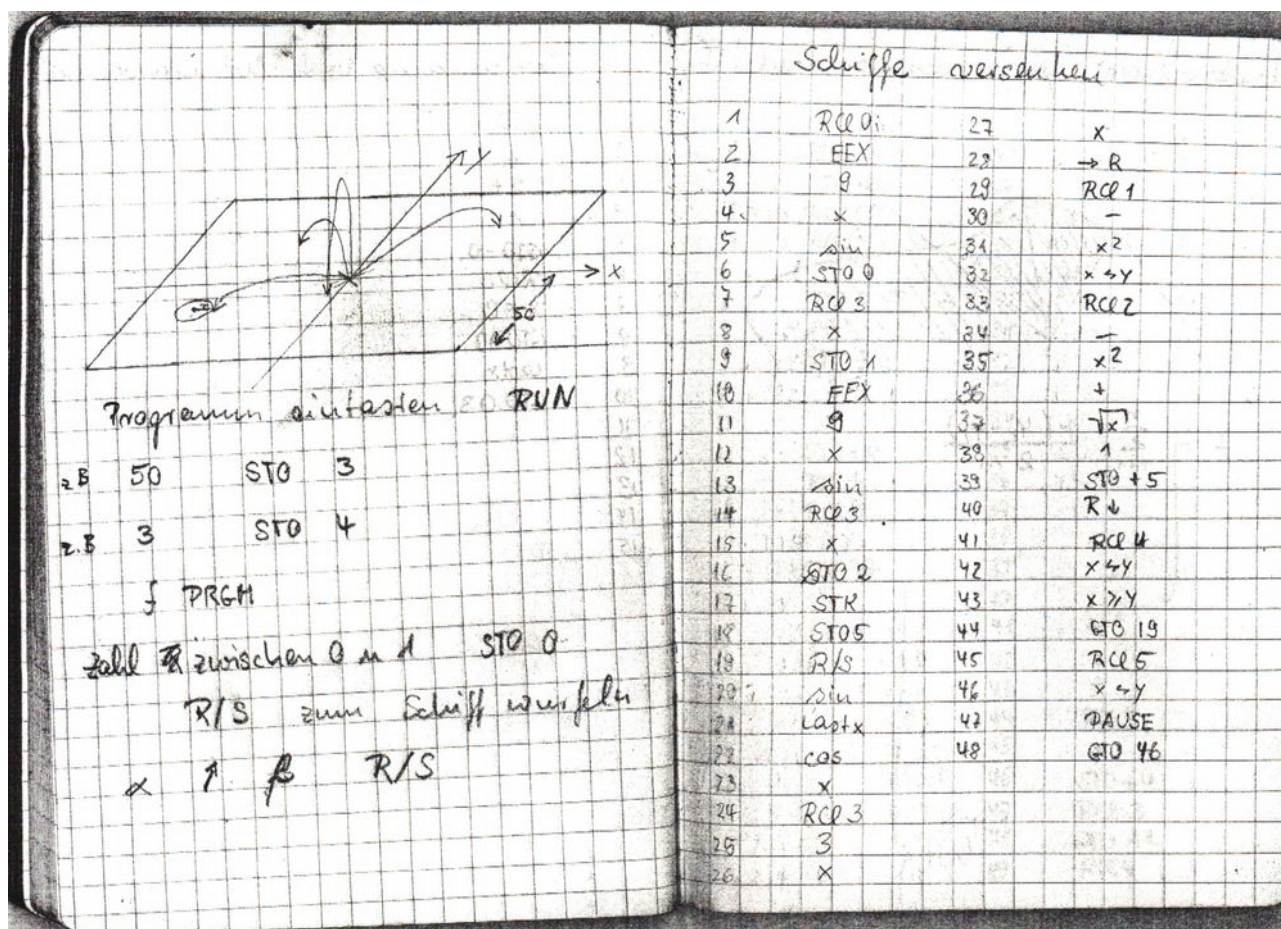 Y
X
50
Programm eintasten RUN
z B 50 STO 3
z.B 3 STO 4
f PRGM
Zahl zwischen 0 u 1 STO 0
R/S zum Schiff würfeln
α ↑ β R/S
Schiffe versenken
1 RCl 0; 27 x
2 EEX 28 → R
3 9 29 RCl 1
4 x 30 -
5 sin 31 x²
6 STO 0 32 x↔y
7 RCl 3 33 RCl 2
8 x 34 -
9 STO 1 35 x²
10 EEX 36 +
11 9 37 √x
12 x 38 1
13 sin 39 STO + 5
14 RCl 3 40 R↓
15 x 41 RCl 4
16 STO 2 42 x↔y
17 STK 43 x≥y
18 STO5 44 GTO 19
19 R/S 45 RCl 5
20 sin 46 x↔y
21 Lastx 47 PAUSE
22 cos 48 GTO 46
23 x
24 RCl 3
25 3
26 x